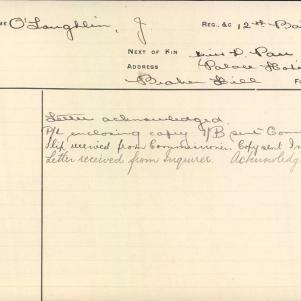 ME O'Loughlin, J REG. &C 12th Ba
NEXT OF KIN Miss D Parr
ADDRESS Palace Hote
Broken Hill FR
Letter acknowledged.
P/L enclosing copy I/B sent Com
slip received from Commissioner. Copy sent In
Letter received from Inquirer. Acknowledg